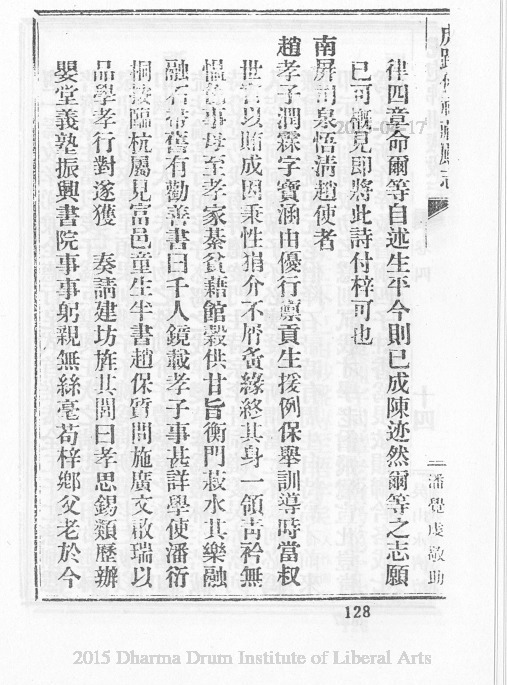 律四章命爾等自述生平今則已成陳迹然爾等之志願
已可槪見即將此詩付梓可也
南屏司泉悟清趙使者
趙孝子潤霖字寶涵由優行廩貢生援例保舉訓導時當权
世官以賄成因秉性狷介不屑夤緣終其身一領靑衿無
慍色事母至孝家綦貧藉館穀供甘旨衡門菽水其樂融
融石帝舊有勸善書曰千人鏡載孝子事甚詳學使潘衍
桐按臨杭屬見富邑童生半書趙保質問施廣文啟瑞以
品學孝行對遂獲 奏請建坊旌其閭曰孝思錫類歷辦
嬰堂義塾振興書院事事躬親無絲毫苟梓鄕父老於今
十四
三潘覺虔敬助
128
2015 Dharma Drum Institute of Liberal Arts